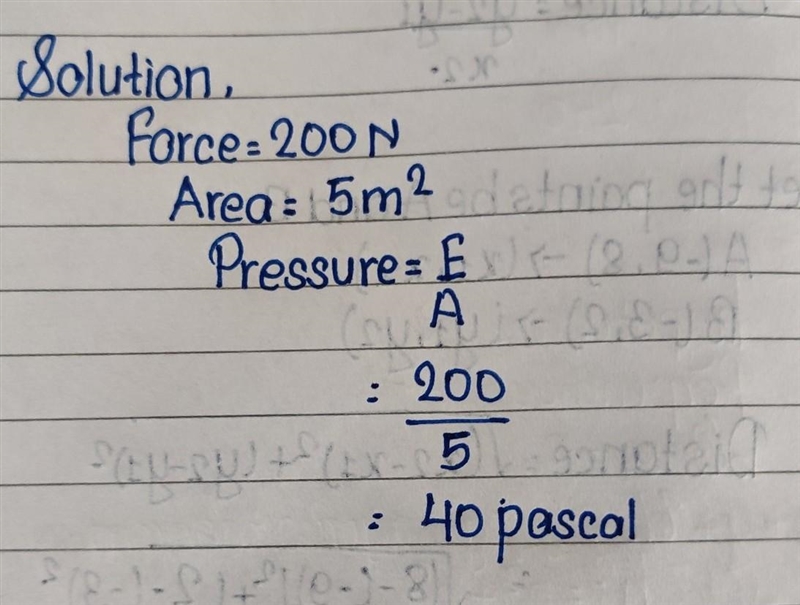 Solution,
Force = 200 N
Area = 5m²
Pressure = F
A
= 200
5
= 40 pascal